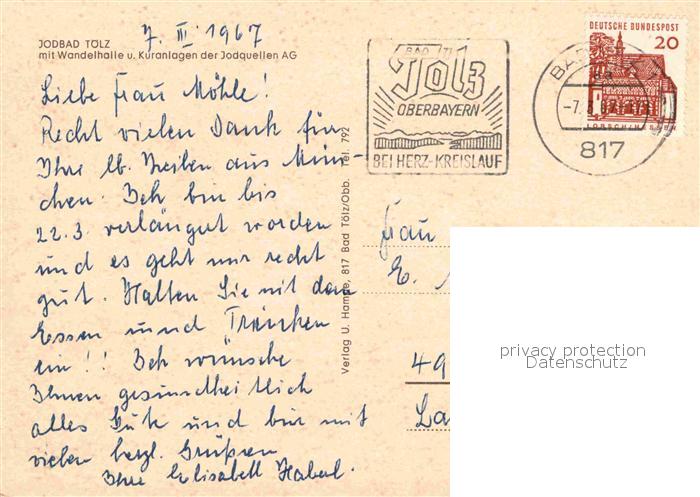 7. III. 1967
JODBAD TÖLZ
mit Wandelhalle u. Kuranlagen der Jodquellen AG
Liebe Frau Möhle!
Recht vielen Dank für
Ihre lb. Zeilen aus Mün-
chen. Ich bin bis
22.3. verlängert worden
und es geht mir recht
gut. Halten Sie mit dem
Essen und Trinken
ein!! Ich wünsche
Ihnen gesundheitlich
alles Gute und bin mit
vielen herzl. Grüßen
Ihre Elisabeth Haberl.
Verlag U. Hampe, 817 Bad Tölz/Obb. Tel. 792
BAD
Tölz
OBERBAYERN
BEI HERZ-KREISLAUF
BAD
-7.
817
DEUTSCHE BUNDESPOST
20
LORSCH/HESSEN
Frau
E.
49
La
privacy protection
Datenschutz